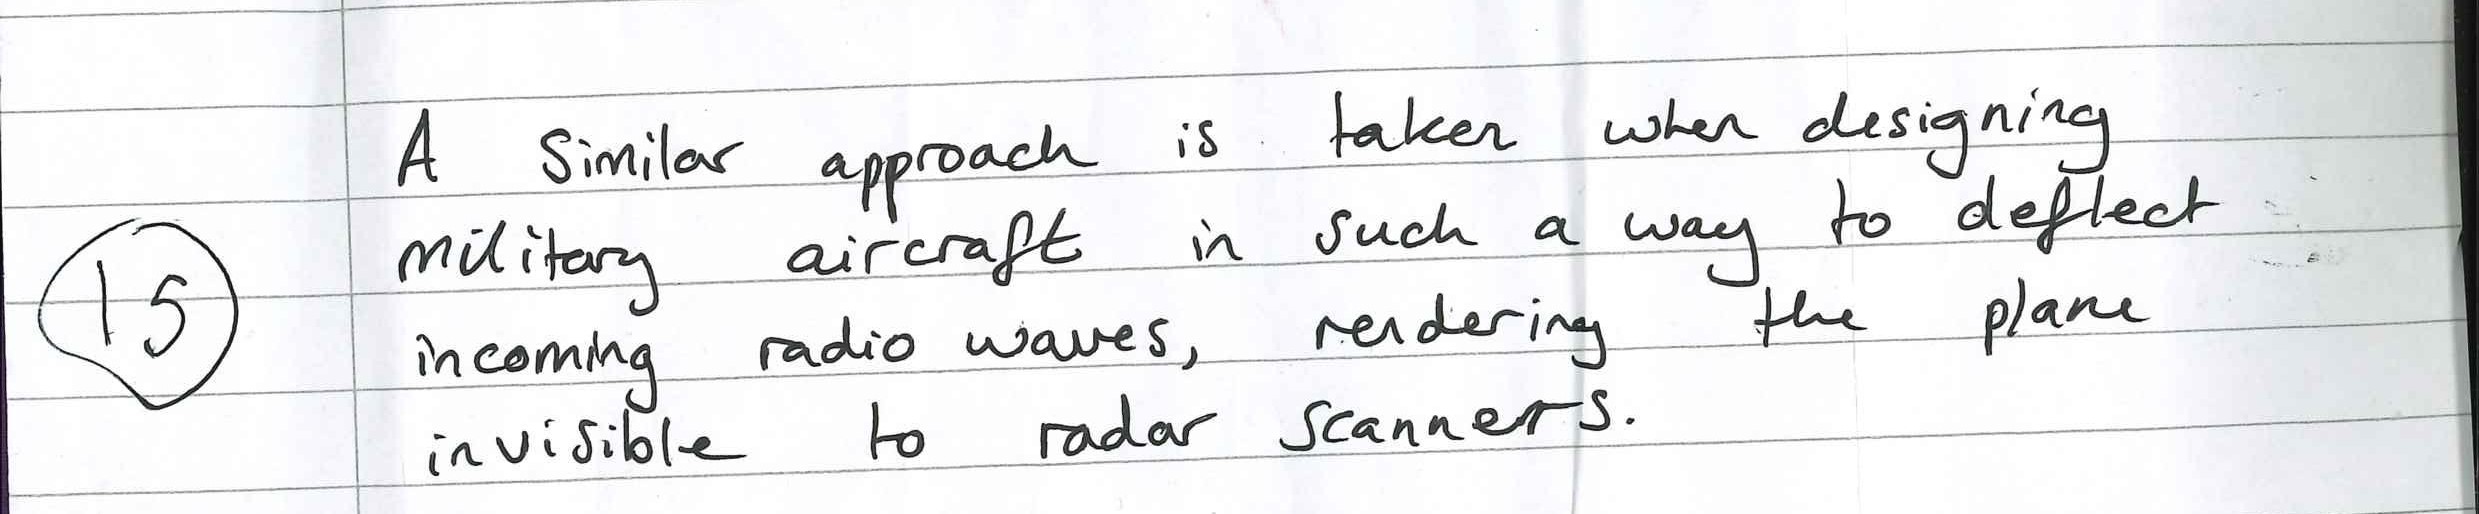 A similar approach is taken when designing
military aircraft in such a way to deflect
15
incoming radio waves, rendering the plane
invisible to radar scanners.